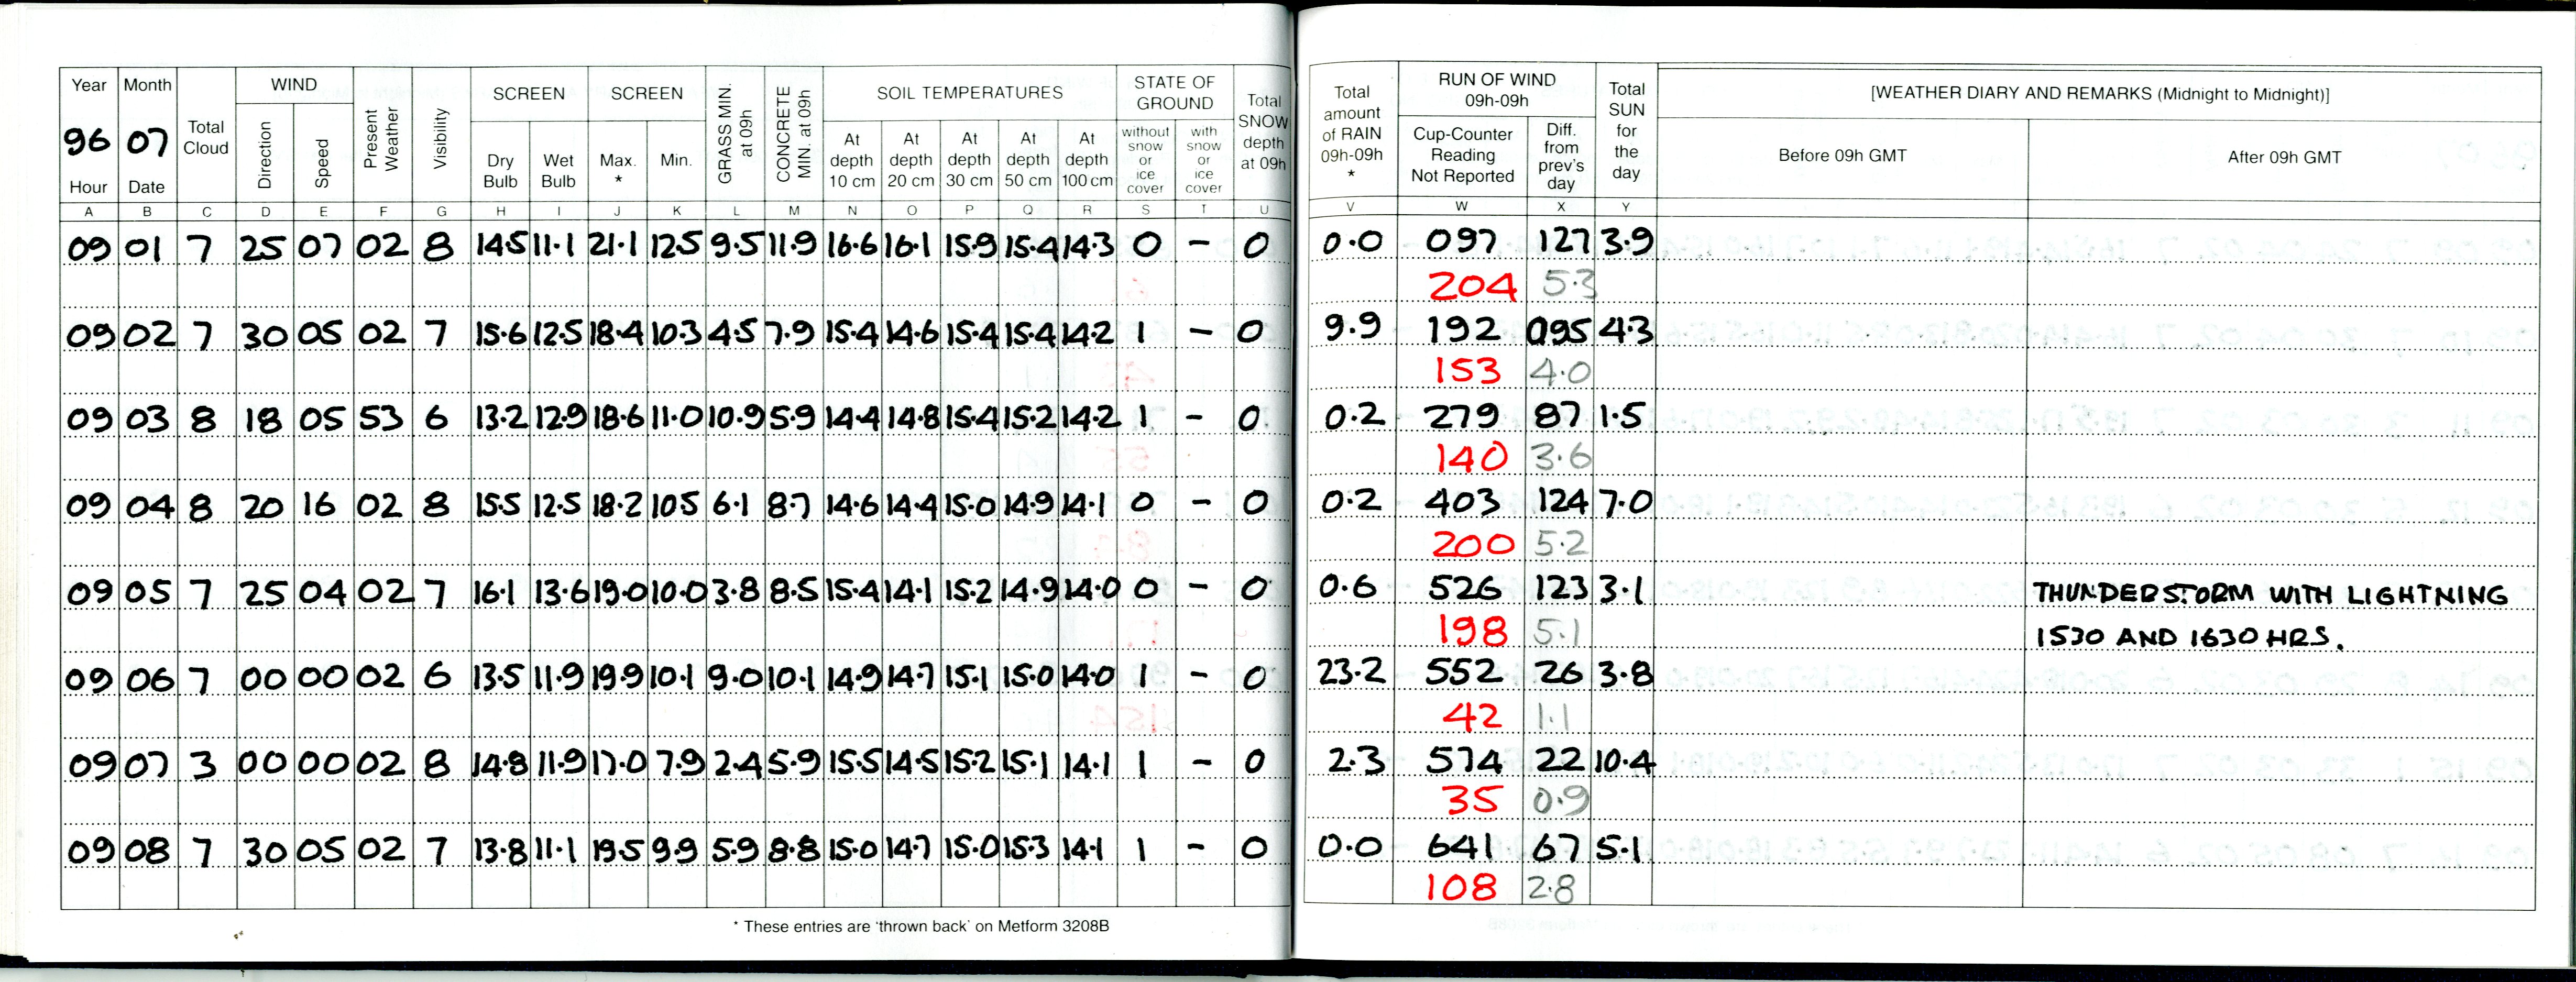 Year Month Total Cloud WIND Present Weather Visibility SCREEN SCREEN GRASS MIN. at 09h CONCRETE MIN. at 09h SOIL TEMPERATURES STATE OF GROUND Total SNOW depth at 09h Total amount of RAIN 09h-09h * RUN OF WIND 09h-09h Total SUN for the day [WEATHER DIARY AND REMARKS (Midnight to Midnight)]
96 07 Direction Speed Dry Bulb Wet Bulb Max. * Min. At depth 10 cm At depth 20 cm At depth 30 cm At depth 50 cm At depth 100 cm without snow or ice cover with snow or ice cover Cup-Counter Reading Not Reported Diff. from prev's day Before 09h GMT After 09h GMT
Hour Date
A B C D E F G H I J K L M N O P Q R S T U V W X Y
09 01 7 25 07 02 8 14.5 11.1 21.1 12.5 9.5 11.9 16.6 16.1 15.9 15.4 14.3 0 - 0 0.0 097 127 3.9
204 5.3
09 02 7 30 05 02 7 15.6 12.5 18.4 10.3 4.5 7.9 15.4 14.6 15.4 15.4 14.2 1 - 0 9.9 192 095 4.3
153 4.0
09 03 8 18 05 53 6 13.2 12.9 18.6 11.0 10.9 5.9 14.4 14.8 15.4 15.2 14.2 1 - 0 0.2 279 87 1.5
140 3.6
09 04 8 20 16 02 8 15.5 12.5 18.2 10.5 6.1 8.7 14.6 14.4 15.0 14.9 14.1 0 - 0 0.2 403 124 7.0
200 5.2
09 05 7 25 04 02 7 16.1 13.6 19.0 10.0 3.8 8.5 15.4 14.1 15.2 14.9 14.0 0 - 0 0.6 526 123 3.1 THUNDERSTORM WITH LIGHTNING
198 5.1 1530 AND 1630 HRS.
09 06 7 00 00 02 6 13.5 11.9 19.9 10.1 9.0 10.1 14.9 14.7 15.1 15.0 14.0 1 - 0 23.2 552 26 3.8
42 1.1
09 07 3 00 00 02 8 14.8 11.9 17.0 7.9 2.4 5.9 15.5 14.5 15.2 15.1 14.1 1 - 0 2.3 574 22 10.4
35 0.9
09 08 7 30 05 02 7 13.8 11.1 19.5 9.9 5.9 8.8 15.0 14.7 15.0 15.3 14.1 1 - 0 0.0 641 67 5.1
108 2.8
* These entries are 'thrown back' on Metform 3208B